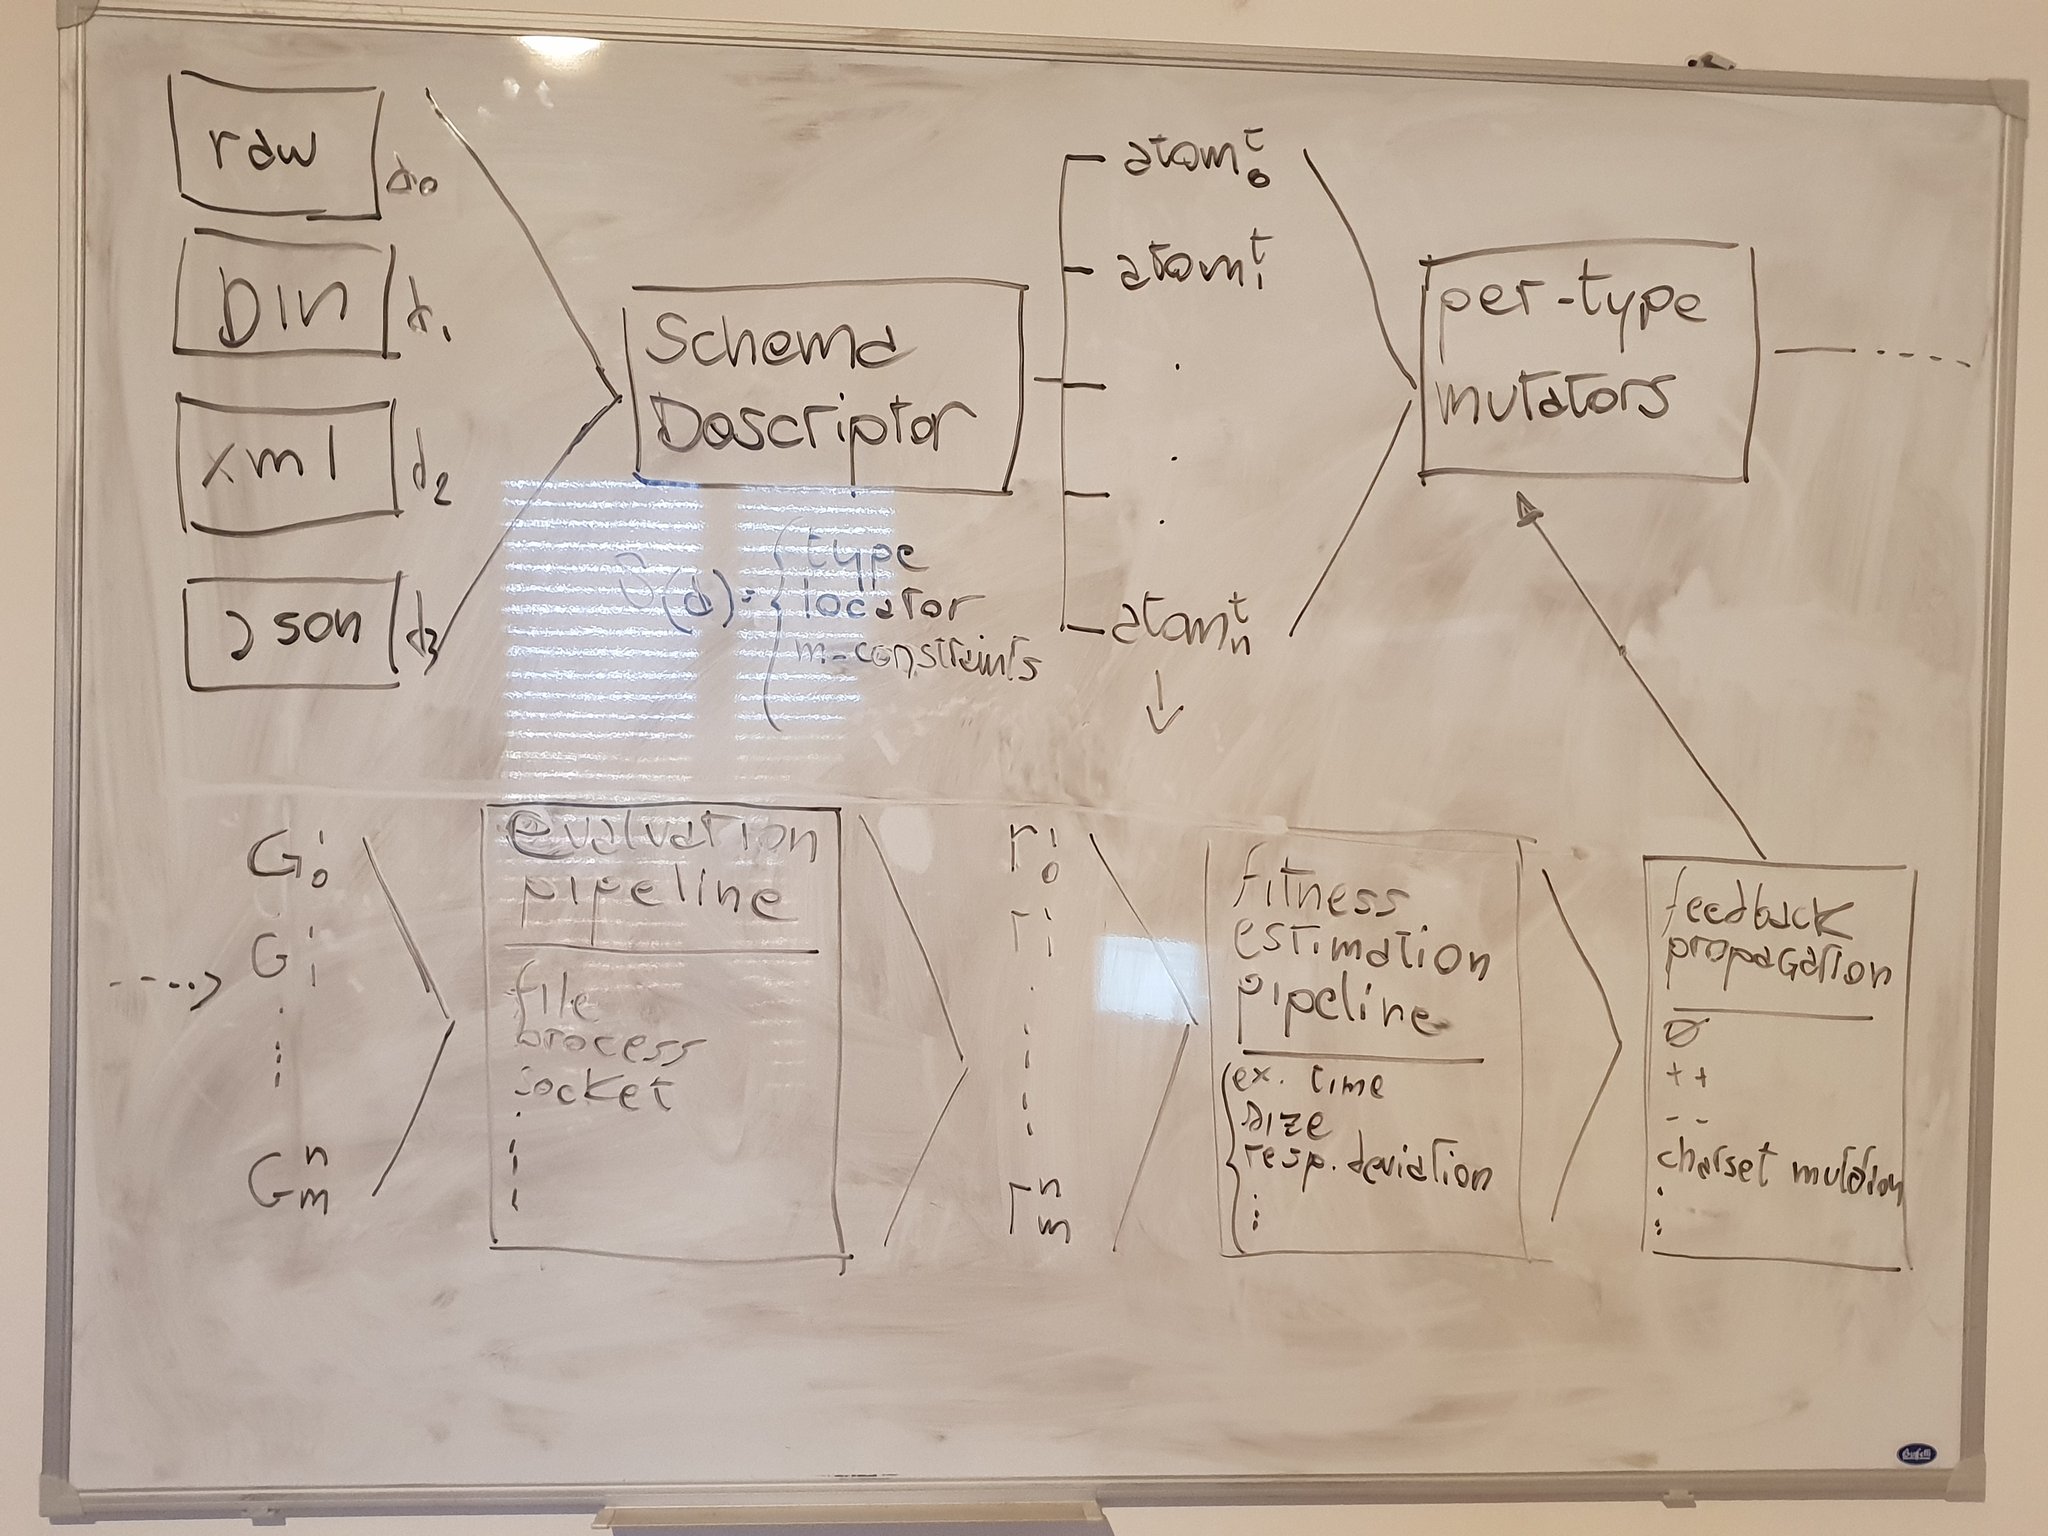 raw d₀
bin d₁
xml d₂
json d₃
Schema
Descriptor
(d): { type
locator
m-constraints
atom₀ᵗ
atom₁ᵗ
.
.
.
atomₙᵗ
↓
per-type
mutators
G₀¹
G₁¹
Gₘⁿ
evaluation
pipeline
file
process
socket
r₀¹
r₁¹
rₘⁿ
fitness
estimation
pipeline
ex. time
size
resp. deviation
feedback
propagation
Ø
++
--
charset mutation